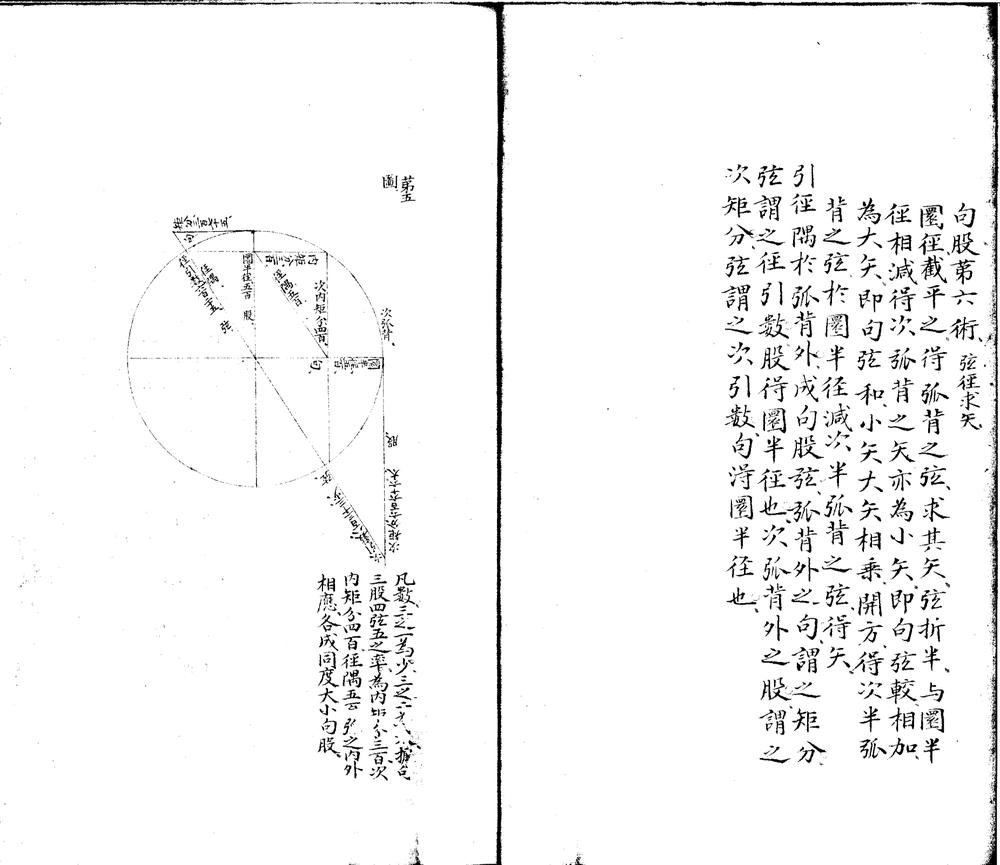 句股第六術 弦徑求矢
圜徑截平之得弧背之弦求其矢弦折半与圜半
徑相減得次弧背之矢亦為小矢即句弦較相加
為大矢即句弦和小矢大矢相乘開方得次半弧
背之弦於圜半徑減次半弧背之弦得矢
引徑隅於弧背外成句股弦弧背外之句謂之矩分
弦謂之徑引數股得圜半徑也次弧背外之股謂之
次矩分弦謂之次引數句淂圜半徑也
第五
圖
次弧背
次內矩分四百
徑隅五百
圜半徑五百
股
徑隅
弦
句
股
凡數三之一為少三之二
三股四弦五之率為內矩分三百次
內矩分四百徑隅五百 之內外
相應各成同度大小句股